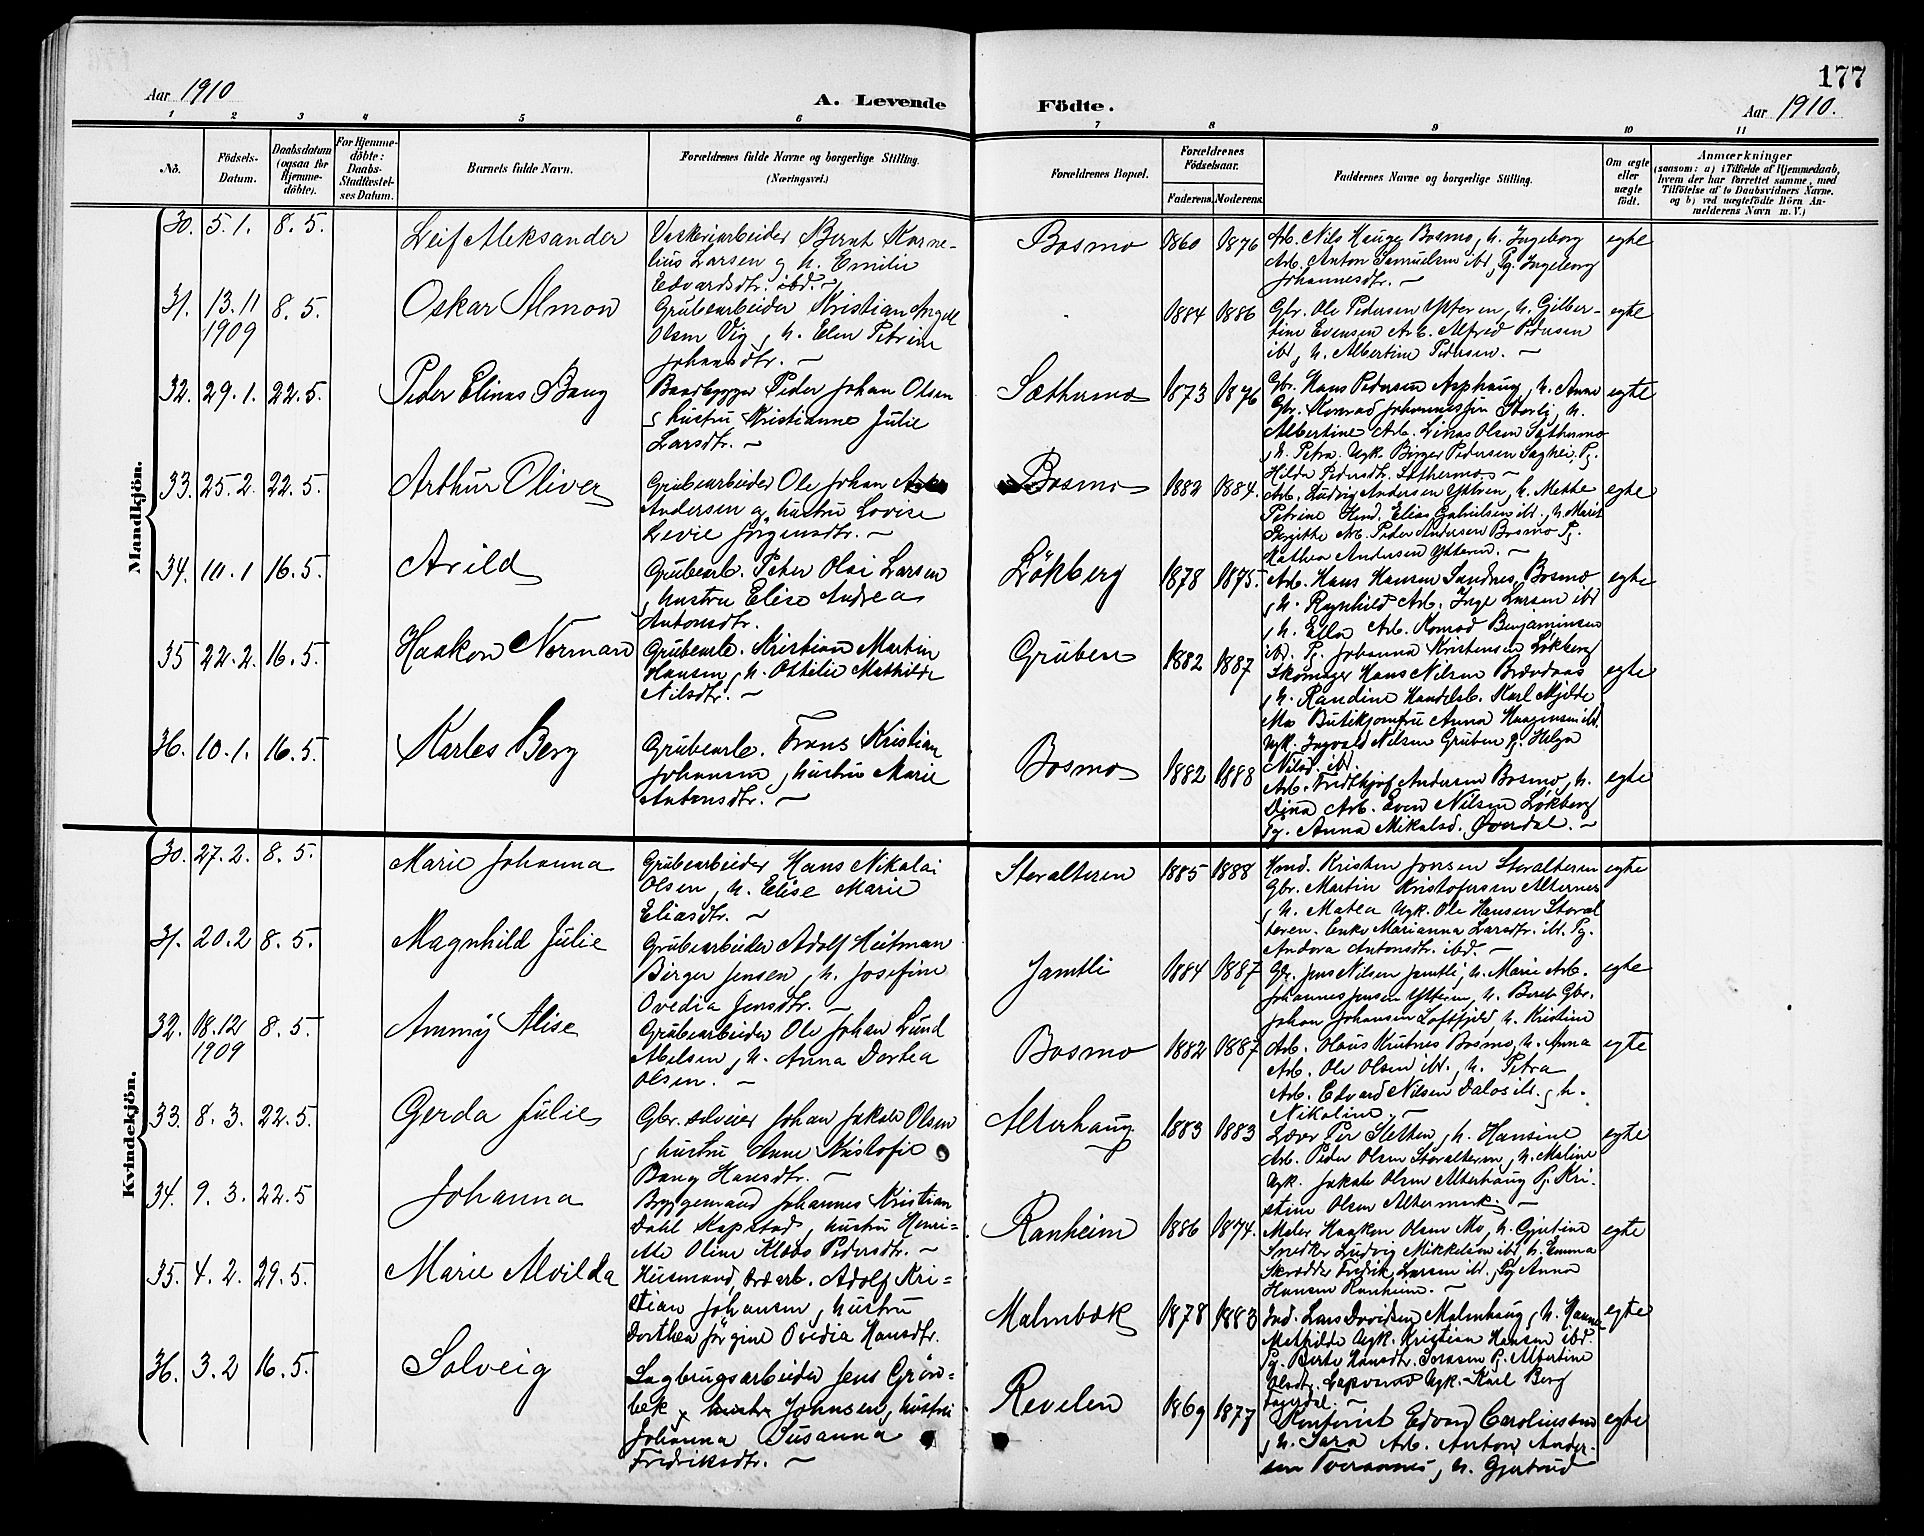 177
Aar 1910
A. Levende Födte.
Aar 1910.
1 2 3 4 5 6 7 8 9 10 11
No.
Födsels-
Datum.
Daabsdatum
(ogsaa for
Hjemme-
döbte).
For Hjemme-
döbte:
Daabs-
Stadfæstel-
ses Datum.
Barnets fulde Navn.
Forældrenes fulde Navne og borgerlige Stilling.
(Næringsvei.)
Forældrenes Bopæl.
Forældrenes
Födselsaar.
Faderens. Moderens.
Faddernes Navne og borgerlige Stilling.
Om ægte
eller
uægte
födt.
Anmærkninger
(saasom: a) i Tilfælde af Hjemmedaab,
hvem der har forrettet samme, med
Tilföielse af to Daabsvidners Navne.
og b) ved uægtefödte Börn An-
melderens Navn m. V.)
Mandkjön.
30. 5.1. 8.5. Leif Aleksander
Vaskeriarbeider Bernt Korne-
lius Larsen og h. Emilie
Edvardsdtr. ibd.
Bosmo 1860 1876
Arb. Nils Hauge Bosmo, h. Ingeborg
Arb. Anton Samuelsen ibd, Pg. Ingeborg
Johannesdtr.
egte
31. 13.11 1909 8.5. Oskar Almon
Grubearbeider Kristian Angel
Olsen Vig, h. Elen Petrine
Johansdtr.
1884 1886
Gbr. Ole Pedersen Ytteren, h. Gjelber-
tine Evensen Arb. Alfred Pedersen
ibd, h. Albertine Pedersen.
egte
32. 29.1. 22.5. Peder Elinas Bang
Baadbygger Peder Johan Olsen
, hustru Kristianne Julie
Larsdtr.
Sæthermo 1873 1876
Gbr. Hans Pedersen Asphaug, h. Anne
Gbr. Konrad Johannessen Storli, h.
Albertine Arb. Linas Olsen Sæthermo
, h. Petra. Ugk. Birger Pedersen Pg.
Hilda Pedersdtr. Sæthermo
egte
33. 25.2. 22.5. Arthur Oliver
Grubearbeider Ole Johan
Andersen og hustru Lovise
Levie Jörgensdtr.
Bosmo 1882 1884.
Arb. Ludvig Andersen Ytteren, h. Methe
Petrine Hmd. Elias Gabrielsen ibd., h. Marit
Birgithe Arb. Peder Andersen Bosmo Pg.
Mathea Andersen Ytteren.
egte
34. 10.1 16.5. Arild
Grubearb. Peter Olai Larsen
, hustru Elise Andrea
Antonsdtr.
Lökberg 1878 1875.
Arb. Hans Hansen Sandnes, Bosmo
, h. Ragnhild Arb. Inge Larsen ibd
, h. Ella Arb. Konrad Benjaminsen
ibd. Pg. Johanna Kristensen Lökberg
egte
35 22.2. 16.5. Haakon Norman
Grubearb. Kristian Martin
Hansen, h. Othelie Mathilde
Nilsdtr.
Gruben 1882 1887
Skomager Hans Nilsen
, h. Randine Handelsb. Karl Mjelde
Mo Butikjomfru Anna Haagensen ibd.
Ugk. Ingvald Nilsen Gruben Pg. Helga
Nilsd. ibd.
egte
36. 10.1. 16.5. Karles Berg
Grubearb. Frans Kristian
Johansen, hustru Marie
Antonsdtr.
Bosmo 1882 1888
Arb. Fridthjof Andersen Bosmo, h.
Dina Arb. Even Nilsen Lökberg
Pg. Anna Mikalsd. Överdal.
egte
Kvindekjön.
30. 27.2. 8.5. Marie Johanna
Grubearbeider Hans Nikolai
Olsen, h. Elise Marie
Eliasdtr.
Storalteren 1885 1888
Hmd. Kristen Jonsen Storalteren
Gbr. Martin Kristofersen Alternes
, h. Matea Ugk. Ole Hansen Storal
teren. Enke Marianna Larsdtr. ibd. Pg.
Andora Antonsdtr. ibd.
egte
31. 20.2 8.5. Magnhild Julie
Grubearbeider Adolf Heitman
Birger Jensen, h. Josefine
Ovedia Jensdtr.
Jamtli 1884 1887
Gbr. Jens Nilsen Jamtli, h. Marie Arb.
Johannes Jensen Ytteren, h. Berit Gbr.
Johan Johansen Loftfjeld h. Kristine
egte
32. 18.12 1909 8.5. Ammy Alise
Grubearbeider Ole Johan Lund
Abelsen, h. Anna Dortea
Olsen.
Bosmo 1882 1887
Arb. Olaus Krutnes Bosmo, h. Anna
Arb. Ole Olsen ibd., h. Petra
Arb. Edvard Nilsen Dalos ibd., h.
Nikoline.
egte
33. 8.3. 22.5. Gerda Julie
Gbr. selveier Johan Jakob Olsen
, hustru Anne Kristofie
Bang Hansdtr.
Alterhaug 1883 1883
Lærer Per Sletten, h. Hansine
Arb. Peder Olsen Storalteren, h. Maline
Ugk. Jakob Olsen Alterhaug Pg. Kri-
stine Olsen Altermark
egte
34. 9.3. 22.5 Johanna
Bryggemand Johannes Kristian
Dahl Kapstad, hustru Henri-
ette Oline Klæbo Pedersdtr.
Ranheim 1886 1874.
Maler Haakon Olsen Mo, h. Gjertine
Snedker Ludvig Mikkelsen ibd, h. Emma
Skrædder Fredrik Larsen ibd., Pg Anna
Hansen Ranheim.
egte
35. 4.2. 29.5. Marie Alvilda
Husmand, arb. Adolf Kri-
stian Johansen, hustru
Dorthea Jörgine Ovedia Hansdtr.
Malmbæk 1878 1883
Ind. Lars Davidsen Malmhaug, h. Hanna
Mathilde Ugk. Kristian Hansen ibd.
Pg. Berte Hansdtr. Pg. Albertine
Olsdtr. Ugk. Karl Berg
egte
36. 3.2 16.5. Solveig
Sagbrugsarbeider Jens Grön-
bek Johnsen, hustru
Johanna Susanna
Fredriksdtr.
Revelen 1869 1877
Kontorist Edvard Caroliussen
, h. Sara Arb. Anton Ander-
sen Tveraanes, h. Gjertrud
egte